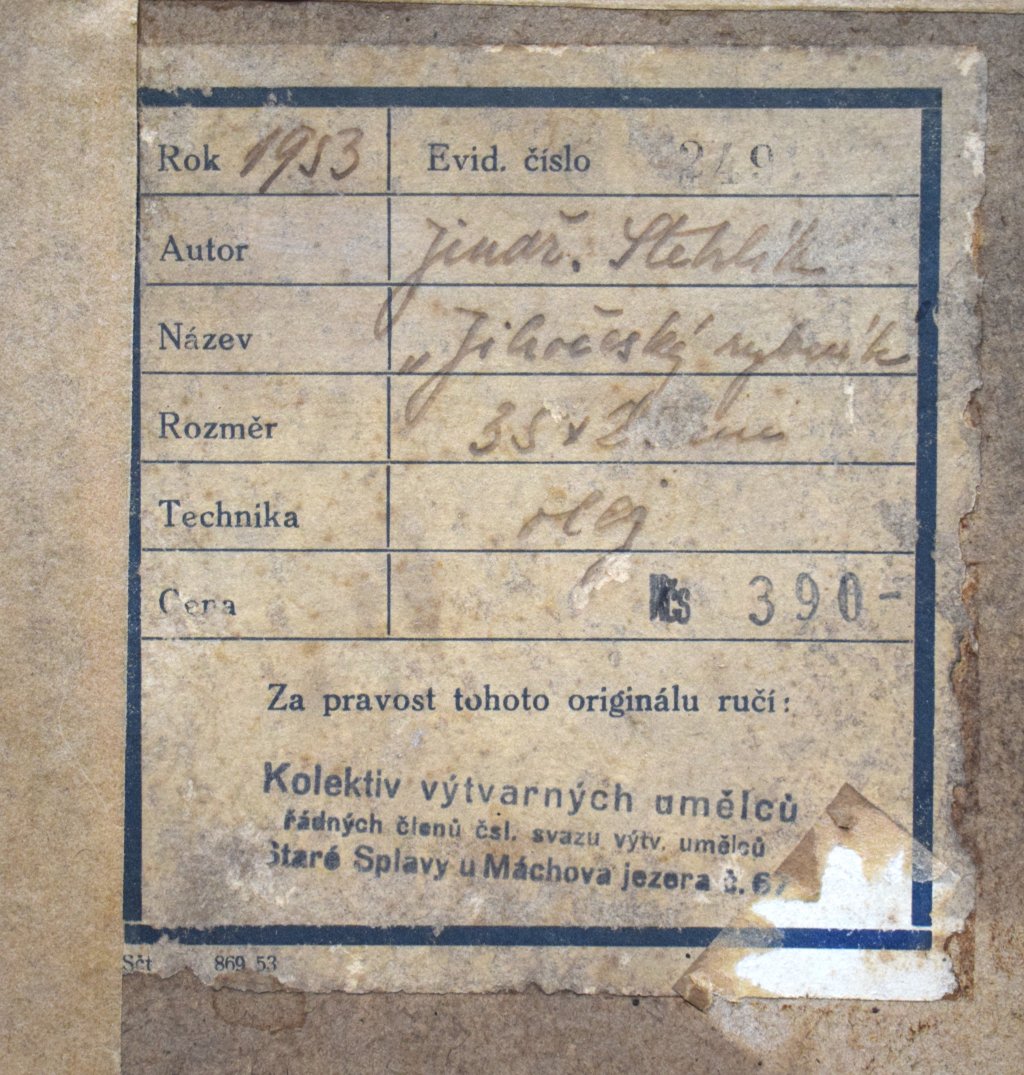 Rok 1953 Evid. číslo 249
Autor Jindř. Stehlík
Název „Jihočeský rybník“
Rozměr 35 x
Technika olej
Cena Kčs 390-
Za pravost tohoto originálu ručí:
Kolektiv výtvarných umělců
řádných členů čsl. svazu výtv. umělců
Staré Splavy u Máchova jezera č. 67
Sčt 869 53